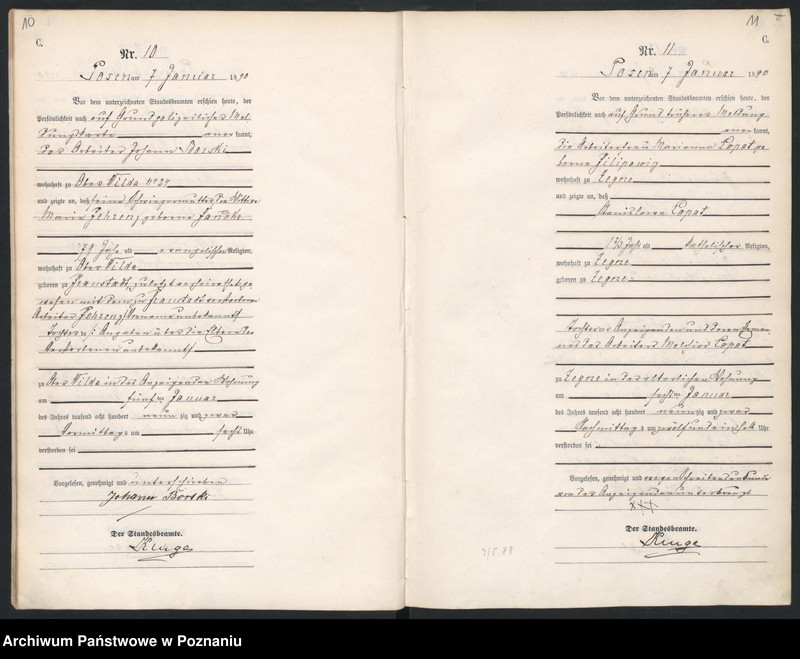 10
C.
Nr. 10
Posen am 7 Januar 1890
Vor dem unterzeichneten Standesbeamten erschien heute, der
Persönlichkeit nach auf Grund polizeilicher Mel
dungskarte anerkannt,
der Arbeiter Johann Borski
wohnhaft zu Ober Wilda No 24
und zeigte an, daß seine Schwiegermutter die Wittwe
Maria Fehrenz, geborne
79 Jahr alt evangelischer Religion,
wohnhaft zu Ober Wilda
geboren zu Fraustadt, zuletzt verheirathet ge
wesen mit dem zu Fraustadt verstorbenen
Arbeiter Fehrenz, Vorname unbekannt
Tochter Angaben über die Eltern der
Verstorbenen unbekannt
zu Ober Wilda in des Anzeigenden Wohnung
am fünften Januar
des Jahres tausend acht hundert neunzig und zwar
Vormittags um sechs Uhr
verstorben sei
Vorgelesen, genehmigt und unterschrieben
Johann Borski
Der Standesbeamte.
Kunge
11
C.
Nr. 11
Posen am 7 Januar 1890
Vor dem unterzeichneten Standesbeamten erschien heute, der
Persönlichkeit nach auf Grund früherer Meldung
anerkannt,
die Arbeiterfrau Marianna Lopat ge
borne Filipowicz
wohnhaft zu Zegrze
und zeigte an, daß
Stanislawa Lopat
1 1/2 Jahr alt katholischer Religion,
wohnhaft zu Zegrze
geboren zu Zegrze
Tochter der Anzeigenden und deren Eheman
nes des Arbeiters Melchior Lopat
zu Zegrze in der elterlichen Wohnung
am sechsten Januar
des Jahres tausend acht hundert neunzig und zwar
Nachmittags um zwölf und ein halb Uhr
verstorben sei
Vorgelesen, genehmigt und wegen Schreibensunkunde
von der Anzeigenden unterkreuzt
+++
Der Standesbeamte.
Kunge
Archiwum Państwowe w Poznaniu